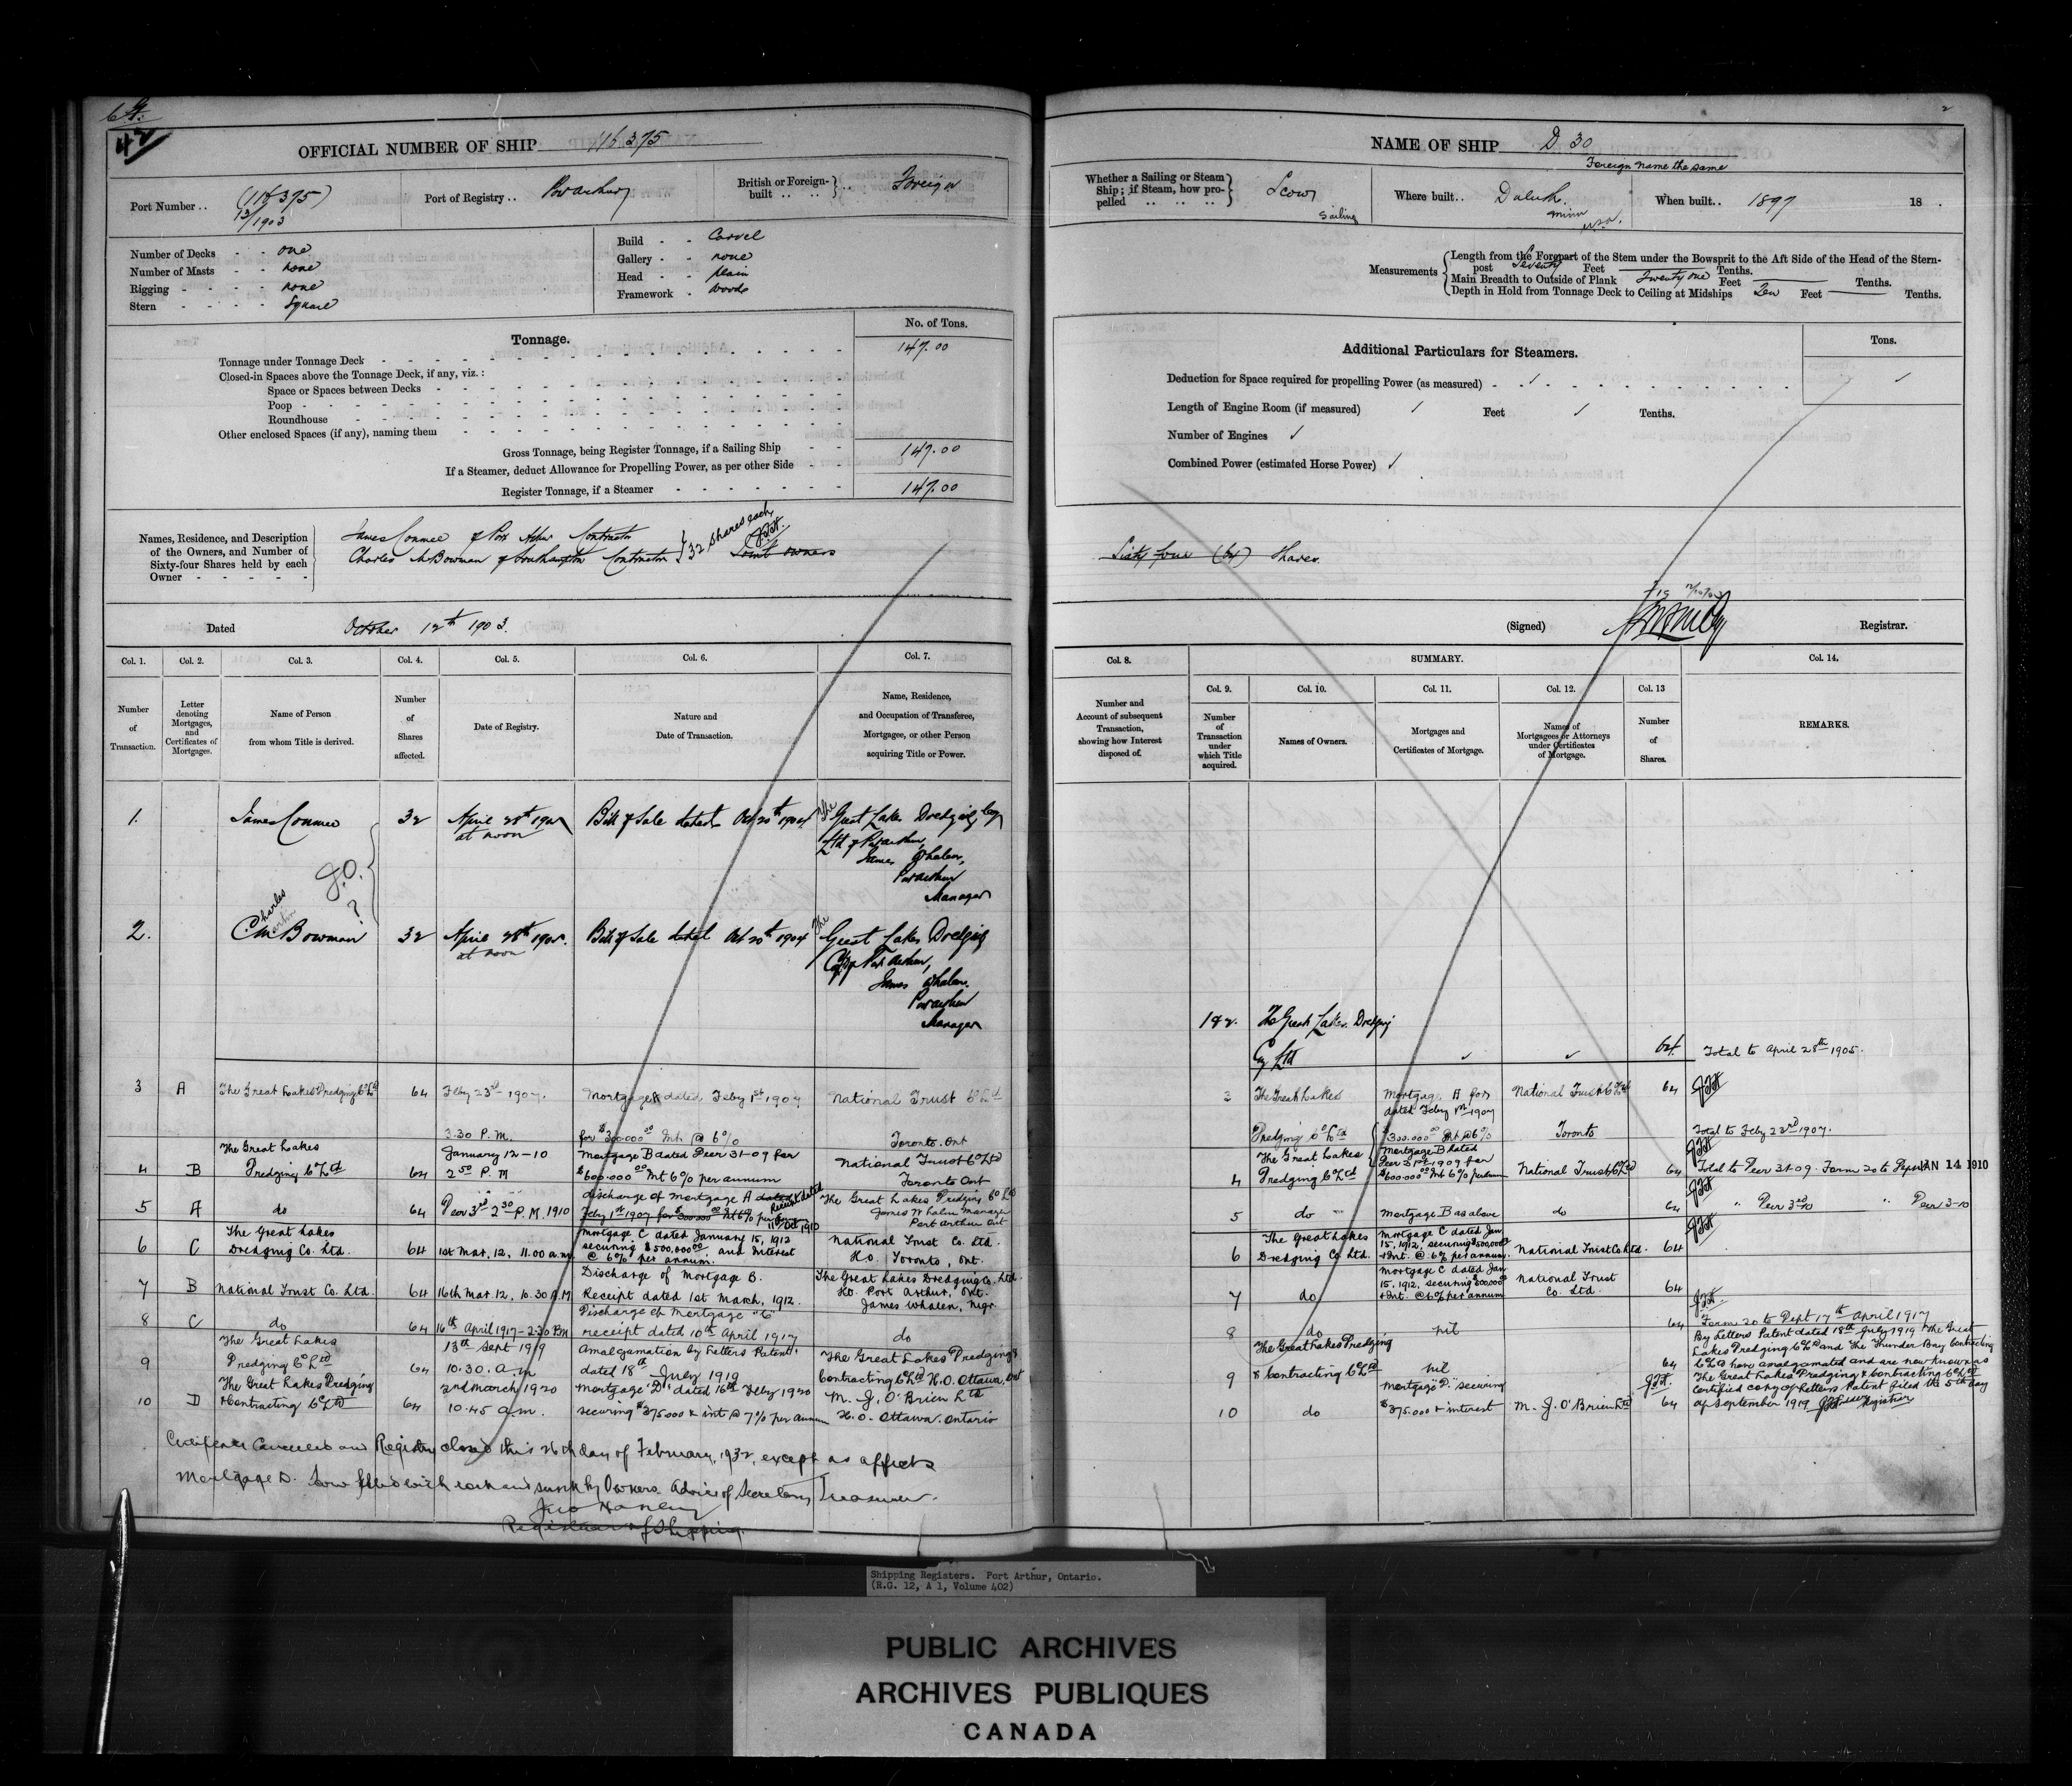 42
OFFICIAL NUMBER OF SHIP 116375
Port Number .. (116375)
13/1903
Port of Registry .. Port Arthur
British or Foreign-built .. .. Foreign
Number of Decks - - one
Number of Masts - - none
Rigging - - - - none
Stern - - - - Square
Build - - Carvel
Gallery - - none
Head - - plain
Framework - Woods
Tonnage.
No. of Tons.
Tonnage under Tonnage Deck 147.00
Closed-in Spaces above the Tonnage Deck, if any, viz.:
Space or Spaces between Decks
Poop
Roundhouse
Other enclosed Spaces (if any), naming them
Gross Tonnage, being Register Tonnage, if a Sailing Ship 147.00
If a Steamer, deduct Allowance for Propelling Power, as per other Side
Register Tonnage, if a Steamer 147.00
Names, Residence, and Description of the Owners, and Number of Sixty-four Shares held by each Owner
James Conmee of Port Arthur Contractor
Charles M Bowman of Southampton Contractor } 32 shares each
Joint owners
Dated October 12th 1903.
Col. 1. Col. 2. Col. 3. Col. 4. Col. 5. Col. 6. Col. 7.
Number of Transaction.
Letter denoting Mortgages, and Certificates of Mortgages.
Name of Person from whom Title is derived.
Number of Shares affected.
Date of Registry.
Nature and Date of Transaction.
Name, Residence, and Occupation of Transferee, Mortgagee, or other Person acquiring Title or Power.
1. James Conmee 32 April 28th 1905 at noon Bill of Sale dated Oct 20th 1904 The Great Lakes Dredging Coy Ltd of Port Arthur, James Whalen, Port Arthur Manager
2. Charles M Bowman 32 April 28th 1905. at noon Bill of Sale dated Oct 20th 1904 The Great Lakes Dredging Coy of Port Arthur, James Whalen. Port Arthur Manager
3 A The Great Lakes Dredging Co Ltd 64 Feby 23rd 1907. 3.30 P.M. Mortgage A dated Feby 1st 1907 for $300.000 00 Int @ 6% National Trust Co Ltd Toronto. Ont
4 B The Great Lakes Dredging Co Ltd 64 January 12-10 2 50 P.M Mortgage B dated Decr 31-09 for $600.000 00 Int 6% per annum National Trust Co Ltd Toronto Ont
5 A do 64 Decr 3rd 2 30 P.M. 1910 discharge of Mortgage A dated Feby 1st 1907 for $300.000 00 Int 6% per annum Receipt dated 11th Oct 1910 The Great Lakes Dredging Co Ltd James Whalen Manager Port Arthur Ont
6 C The Great Lakes Dredging Co. Ltd. 64 1st Mar, 12, 11.00 a.m. Mortgage C dated January 15, 1912 securing $500,000 00 and interest @ 6% per annum. National Trust Co. Ltd. H.O. Toronto, Ont.
7 B National Trust Co. Ltd. 64 16th Mar. 12, 10.30 A.M Discharge of Mortgage B. Receipt dated 1st March, 1912. The Great Lakes Dredging Co. Ltd. H.O. Port Arthur, Ont. James Whalen, Mgr.
8 C do 64 16th April 1917-2.30 P.M Discharge of Mortgage "C" receipt dated 10th April 1917 do
9 The Great Lakes Dredging Co Ltd 64 13th Sept 1919 10.30. a.m Amalgamation by Letters Patent. dated 18th July 1919 The Great Lakes Dredging & Contracting Co Ltd H.O. Ottawa, Ont
10 D The Great Lakes Dredging & Contracting Co Ltd 64 2nd March 1920 10.45 a.m. Mortgage "D" dated 16th Feby 1920 securing $375.000 & int @ 7% per annum M. J. O'Brien Ltd H.O. Ottawa. Ontario
Certificate Cancelled and Registry closed this 26th day of February, 1932, except as affects
Mortgage D. Scow filled with rock and sunk by Owners. Advice of Secretary Treasurer.
Registrar of Shipping
2
NAME OF SHIP D 30
Foreign name the same
Whether a Sailing or Steam Ship; if Steam, how propelled .. .. .. Scow Sailing
Where built .. Duluth. Minn U.S.A.
When built .. 1897 18 .
Measurements
Length from the Forepart of the Stem under the Bowsprit to the Aft Side of the Head of the Stern-post Seventy Feet — Tenths.
Main Breadth to Outside of Plank Twenty one Feet — Tenths.
Depth in Hold from Tonnage Deck to Ceiling at Midships Ten Feet — Tenths.
Additional Particulars for Steamers.
Tons.
Deduction for Space required for propelling Power (as measured)
Length of Engine Room (if measured) Feet Tenths.
Number of Engines
Combined Power (estimated Horse Power)
Sixty four (64) Shares.
(Signed) Registrar.
Col. 8. SUMMARY. Col. 14.
Col. 9. Col. 10. Col. 11. Col. 12. Col. 13
Number and Account of subsequent Transaction, showing how Interest disposed of.
Number of Transaction under which Title acquired.
Names of Owners.
Mortgages and Certificates of Mortgage.
Names of Mortgagees or Attorneys under Certificates of Mortgage.
Number of Shares.
REMARKS.
1 & 2. The Great Lakes Dredging Coy Ltd 64 Total to April 28th 1905.
3 The Great Lakes Dredging Co Ltd Mortgage A for dated Feby 1st 1907 $300.000 00 Int @ 6% National Trust Co Ltd Toronto 64 Total to Feby 23rd 1907.
4 The Great Lakes Dredging Co Ltd Mortgage B dated Decr 31st 1909 for $600.000 00 Int 6% per annum National Trust Co Ltd 64 Total to Decr 31-09. Form 20 to Dept JAN 14 1910
5 do Mortgage B as above do 64 " Decr 3rd-10 " Decr 3-10
6 The Great Lakes Dredging Co. Ltd. Mortgage C dated Jan 15, 1912, securing $500,000 00 + Int. @ 6% per annum. National Trust Co. Ltd. 64
7 do Mortgage C dated Jan 15, 1912, securing $500,000 00 + Int. @ 6% per annum National Trust Co. Ltd. 64
8 do nil 64 Form 20 to Dept 17th April 1917
9 The Great Lakes Dredging & Contracting Co Ltd nil 64 By Letters Patent dated 18th July 1919 The Great Lakes Dredging Co Ltd and The Thunder Bay Contracting Co Ltd have amalgamated and are now known as The Great Lakes Dredging & Contracting Co Ltd Certified copy of Letters Patent filed the 5th day of September 1919 Registrar
10 do Mortgage "D" securing $375.000 & interest M. J. O'Brien Ltd 64
Shipping Registers. Port Arthur, Ontario.
(R.G. 12, A 1, Volume 402)
PUBLIC ARCHIVES
ARCHIVES PUBLIQUES
CANADA